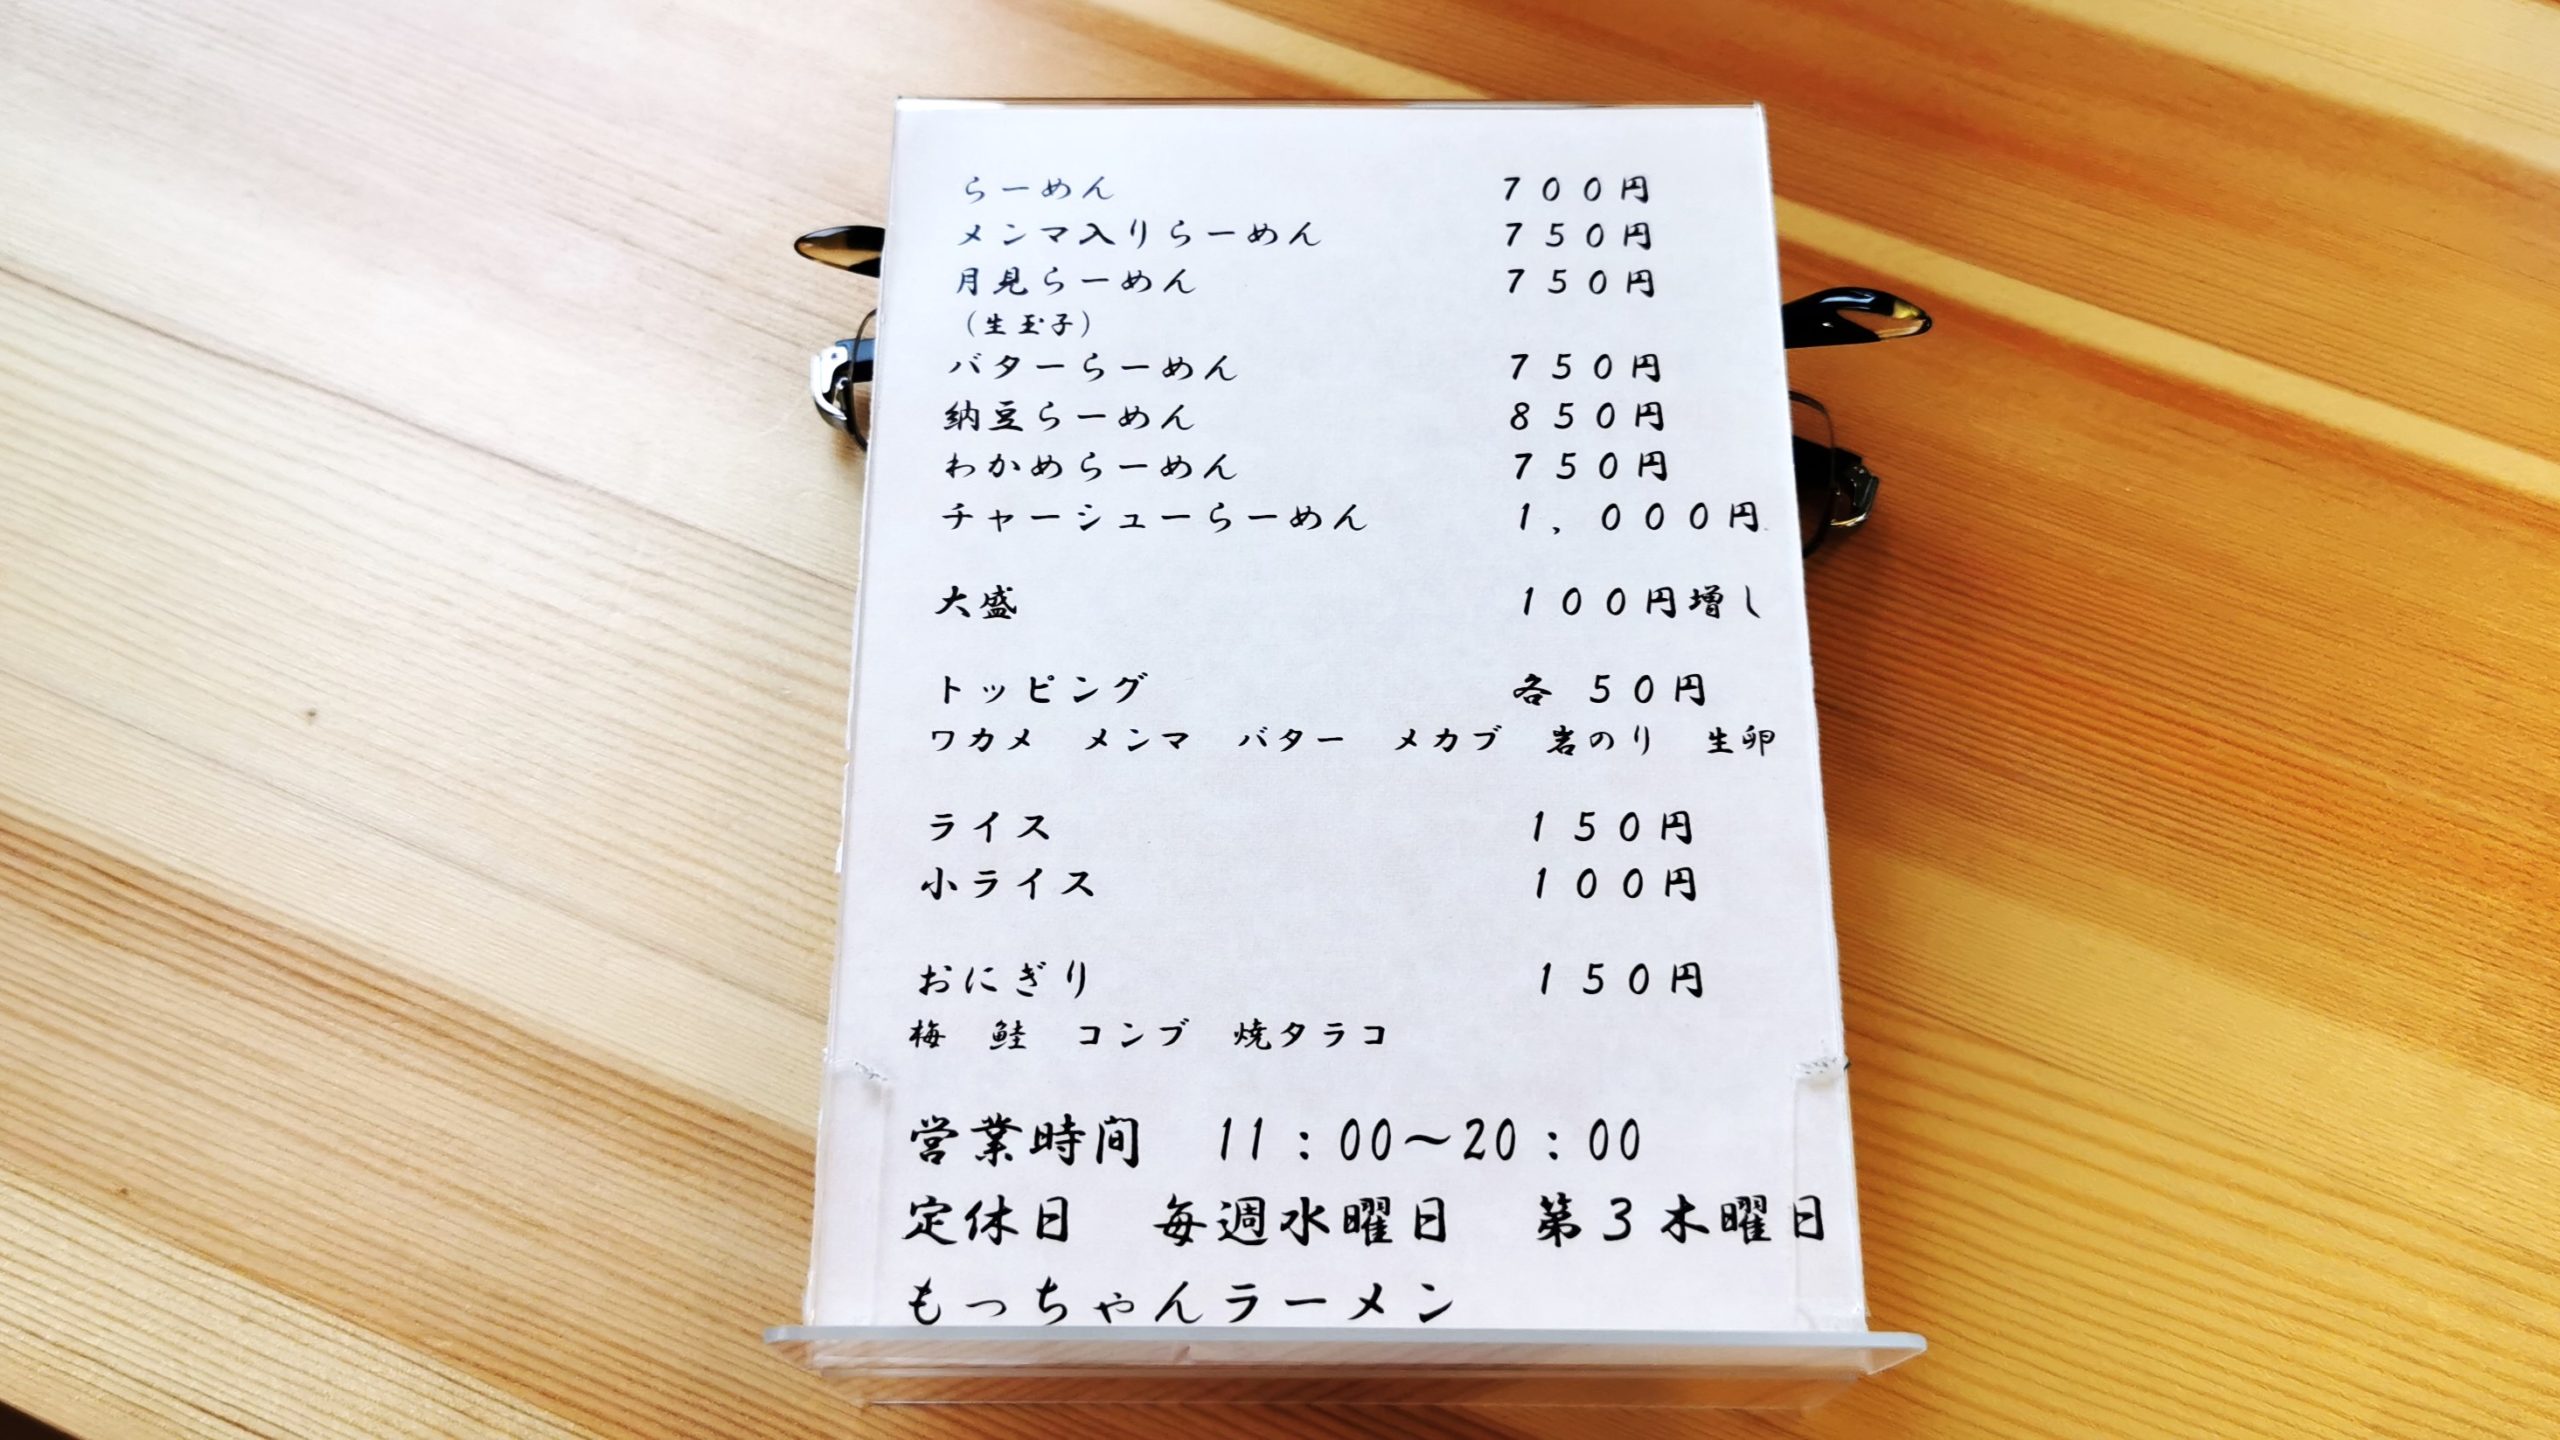 らーめん　７００円
メンマ入りらーめん　７５０円
月見らーめん　７５０円
（生玉子）
バターらーめん　７５０円
納豆らーめん　８５０円
わかめらーめん　７５０円
チャーシューらーめん　１，０００円
大盛　１００円増し
トッピング　各　５０円
ワカメ　メンマ　バター　メカブ　岩のり　生卵
ライス　１５０円
小ライス　１００円
おにぎり　１５０円
梅　鮭　コンブ　焼タラコ
営業時間　11：00～20：00
定休日　毎週水曜日　第３木曜日
もっちゃんラーメン